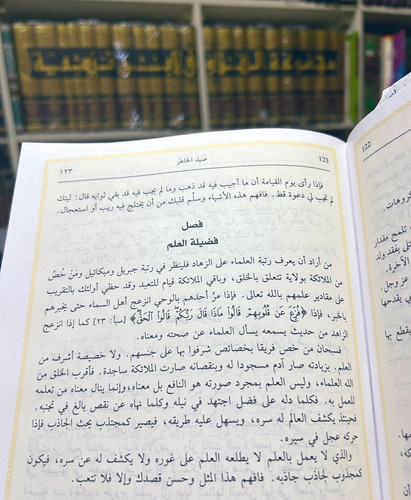 مجموعة الفتاوى
١٢٣ صيد الخاطر 123
فإذا رأى يوم القيامة أن ما أجيب فيه قد ذهب وما لم يجب فيه قد بقي ثوابه قال: ليتك
لم تجب لي دعوة قط. فافهم هذه الأشياء وسلّم قلبك من أن يختلج فيه ريب أو استعجال.
فصل
فضيلة العلم
من أراد أن يعرف رتبة العلماء على الزهاد فلينظر في رتبة جبريل وميكائيل ومَنْ خُصَّ
من الملائكة بولاية تتعلق بالخلق، وباقي الملائكة قيام للتعبد وقد حظي أولئك بالتقريب
على مقادير علمهم بالله تعالى. فإذا مرَّ أحدهم بالوحي انزعج أهل السماء حتى يخبرهم
بالخبر، فإذا ﴿فُزِّعَ عَن قُلُوبِهِمْ قَالُوا مَاذَا قَالَ رَبُّكُمْ قَالُوا الْحَقَّ﴾ [سبأ: ٢٣] كما إذا انزعج
الزاهد من حديث يسمعه يسأل العلماء عن صحته ومعناه.
فسبحان من خص فريقاً بخصائص شرفوا بها على جنسهم. ولا خصيصة أشرف من
العلم. بزيادته صار آدم مسجوداً له وبنقصانه صارت الملائكة ساجدة. فأقرب الخلق من
الله العلماء، وليس العلم بمجرد صورته هو النافع بل معناه، وإنما ينال معناه من تعلمه
للعمل به. فكلما دله على فضل اجتهد في نيله وكلما نهاه عن نقص بالغ في تجنبه.
فحينئذ يكشف العالم له سره، ويسهل عليه طريقه، فيصير كمجتذب يحث الجاذب فإذا
حركه عجل في سيره.
والذي لا يعمل بالعلم لا يطلعه العلم على غوره ولا يكشف له عن سره، فيكون
كمجذوب لجاذب جاذبه. فافهم هذا المثل وحسن قصدك وإلا فلا تتعب.
122